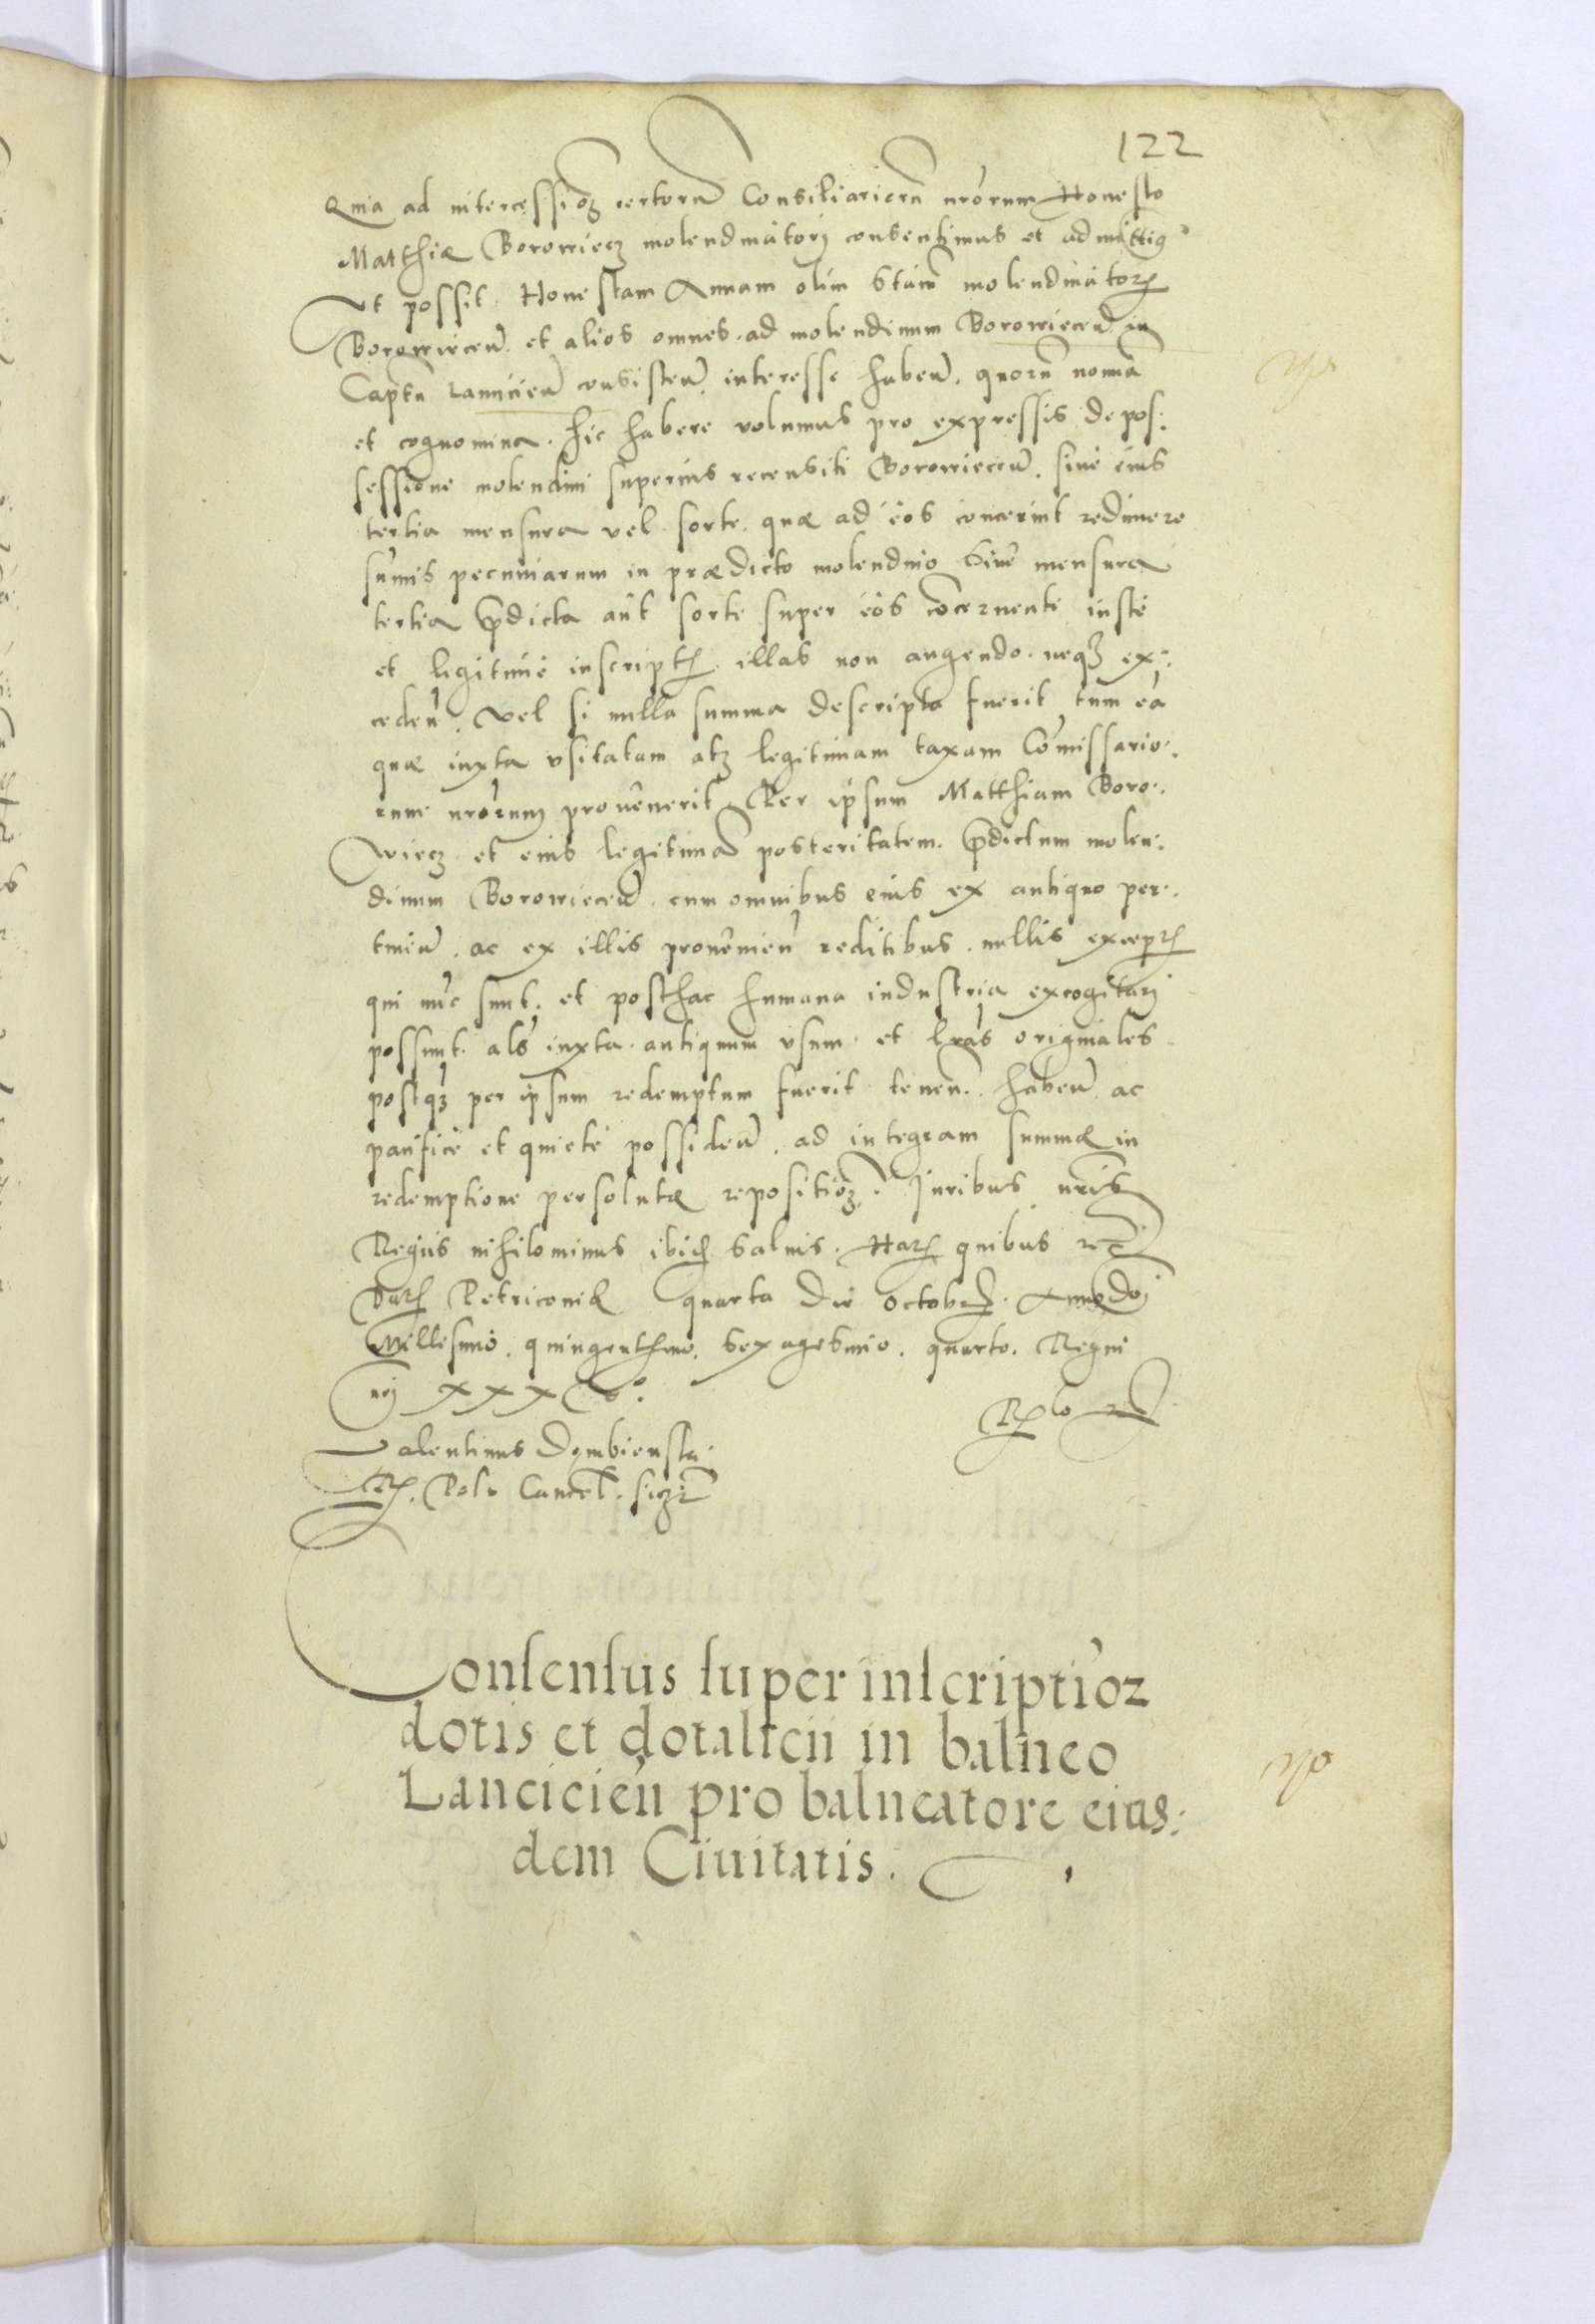 122
Quia ad intercessioȝ certorũ Consiliariorũ nrorum Honesto
Matthiæ Borowiecȝ molendinatorj consentimus et admittimꝰ
Vt possit. Honestam Annam olim Stani molendinatorꝭ
Borowiecen̄. et alios omnes. ad molendinum Borowiecen̄ in
Captu ranicien̄ consisten̄. interesse haben̄. quorũ nomina
et cognomina. hic habere volumus pro expressis de pos:
sessione molendini superius recensiti Borowiecen̄. siue eius
tertia mensura vel sorte. quæ ad eos concerint redimere
summis pecuniarum in prædicto molendino siue mensura
tertia p̄dicta aut sorte super eos cōcernenti iuste
et legitime inscriptꝭ. illas non augendo. neqȝ ex:
ceden̄. Vel si nulla summa descripta fuerit tum ea
quæ iuxta vsitatam atqȝ legitimam taxam Cōmissario:
rum nrorum prouenerit Per ipsum Matthiam Boro:
wiecȝ et eius legitimā posteritatem. p̄dictum molen:
dinum Borowiecen̄. cum omnibus eius ex antiquo per:
tinen̄. ac ex illis prouenien̄ reditibus. nullis exceptꝭ
qui nūc sunt. et posthac humana industria excogitarj
possunt. als iuxta antiquum vsum et lras originales
postqȝ per ipsum redemptum fuerit tenen̄. haben̄ ac
pacifice et quiete possiden̄. ad integram summæ in
redemptione persolutæ repositioȝ. Iuribus nris
Regiis nihilominus ibidꝭ saluis. Harꝭ quibus rc̄
Datꝭ Petricouiæ quarta die Octobrꝭ. Anno Doj
Millesimo. quingentesimo. sexagesimo. quarto. Regni
nrj XXXVo.
Valentinus Dembienski
R. Poln Cancel. ssȝt
Consensus super inscriptioȝ
dotis et dotalicii in balneo
Lancicień pro balneatore eius:
dem Ciuitatis.